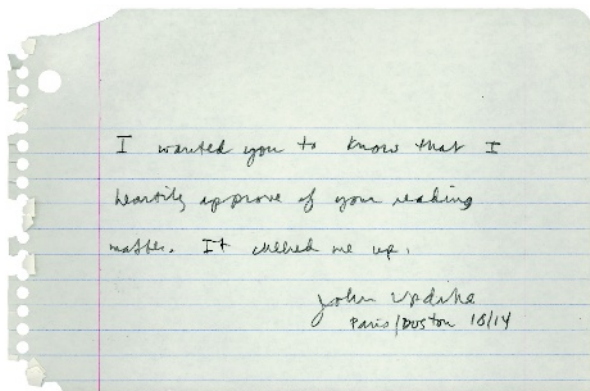 I wanted you to know that I
heartily approve of your reading
matter. It cheered me up.
John Updike
Paris/Boston 10/14